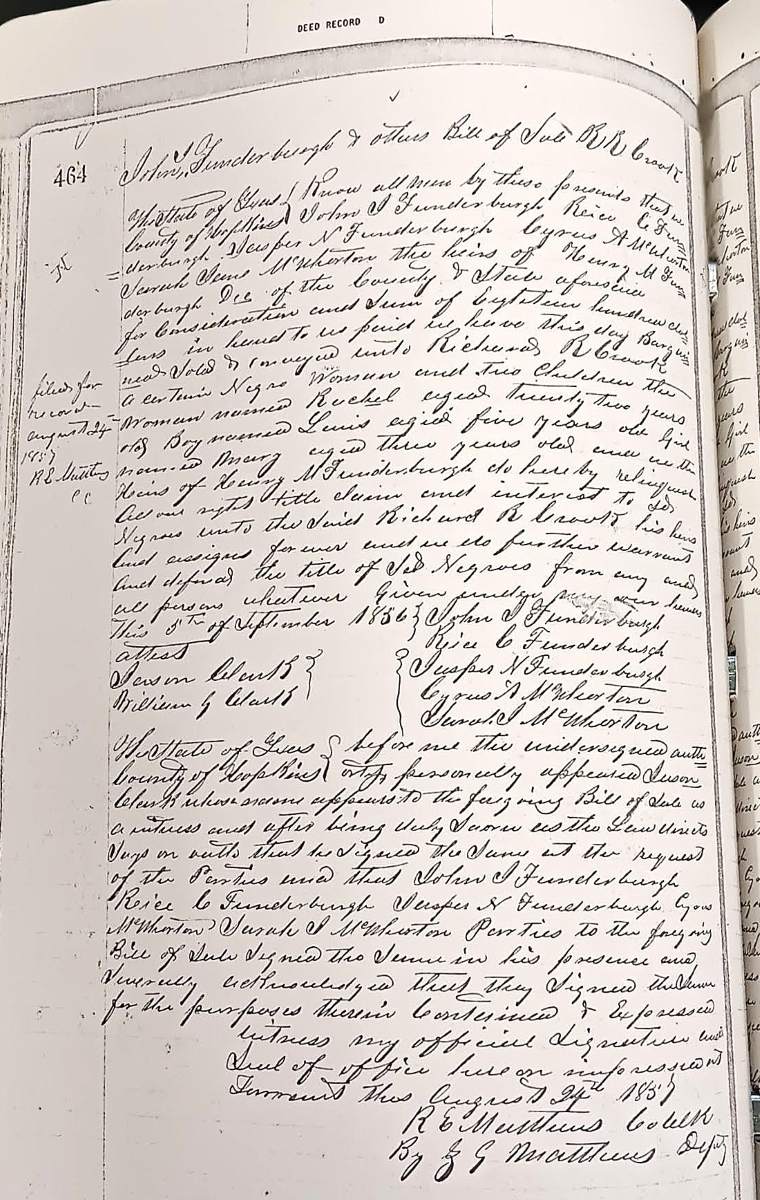 DEED RECORD D
464
John J Funderburgh & others Bill of Sale R R Crook
The State of Texas } Know all men by these presents that we
County of Hopkins } John J Funderburgh Reice C Fun
derburgh Jasper N Funderburgh Cyrus A McWhorton
Sarah Jane McWhorton the heirs of Henry M Fun
derburgh Dec of the County & State aforesaid
for Consideration and Sum of Eighteen hundred dol
lars in hand to us paid we have this day Bargai
ned Sold & conveyed unto Richard R Crook
a certain Negro Woman and two Children the
Woman named Rachel aged twenty two years
old Boy named Lewis aged five years old Girl
named Mary aged three years old and we the
Heirs of Henry M Funderburgh do hereby relinquish
all our right title claim and interest to Sd
Negroes unto the Said Richard R Crook his heirs
and assigns forever and we do further warrant
and defend the title of Sd Negroes from any and
all persons whatever Given under our hands
This 5th of September 1856 } John J Funderburgh
Reice C Funderburgh
attest
Jason Clark } { Jasper N Funderburgh
William G Clark } Cyrus A McWhorton
Sarah J McWhorton
filed for
record
august 24
1857
R E Matthews
CC
The State of Texas } before me the undersigned auth
County of Hopkins } ority personally appeared Jason
Clark whose name appears to the forgoing Bill of Sale as
a witness and after being duly Sworn as the Law directs
Says on oath that he Signed the Same at the request
of the Parties and that John J Funderburgh
Reice C Funderburgh Jasper N Funderburgh Cyrus
McWhorton Sarah J McWhorton Parties to the forgoing
Bill of Sale Signed the Same in his presence and
Severally acknowledged that they Signed the Same
for the purposes therein Contained & Expressed
Witness my official Signature and
Seal of office hereon impressed at
Tarrant this August 24th 1857
R E Matthews Co Clk
By G Matthews Depty